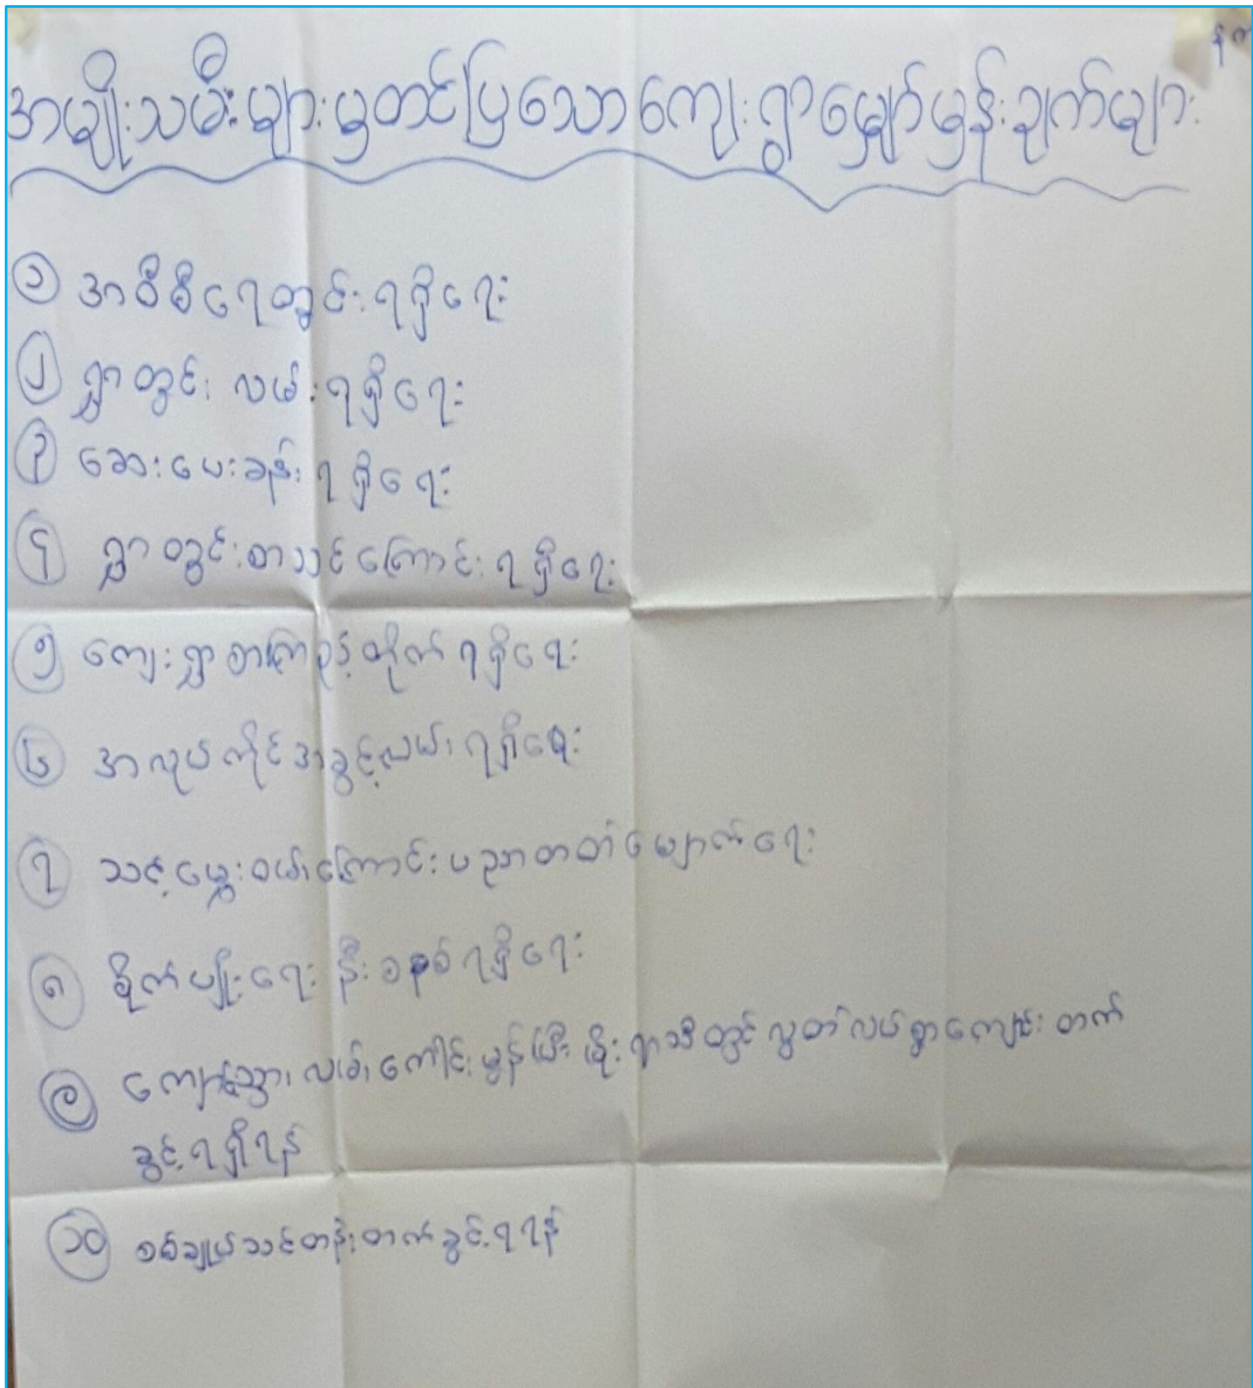 အမျိုးသမီးများမှတင်ပြသောကျေးရွာမျှော်မှန်းချက်များ
၁ အဝီစိရေတွင်းရရှိရေး
၂ ရွာတွင်းလမ်းရရှိရေး
၃ ဆေးပေးခန်းရရှိရေး
၄ ရွာတွင်းစာသင်ကြောင်းရရှိရေး
၅ ကျေးရွာစာကြည့်တိုက်ရရှိရေး
၆ အလုပ်ကိုင်အခွင့်လမ်းရရှိရေး
၇ သင့်မွေးဝမ်းကြောင်းပညာတတ်မြောက်ရေး
၈ စိုက်ပျိုးရေးနီးစနစ်ရရှိရေး
၉ ကျောင်းသွားလမ်းကောင်းမွန်ပြီးမိုးရာသီတွင်လွတ်လပ်စွာကျောင်းတက်
ခွင့်ရရှိရန်
၁၀ စက်ချုပ်သင်တန်းတက်ခွင့်ရရန်